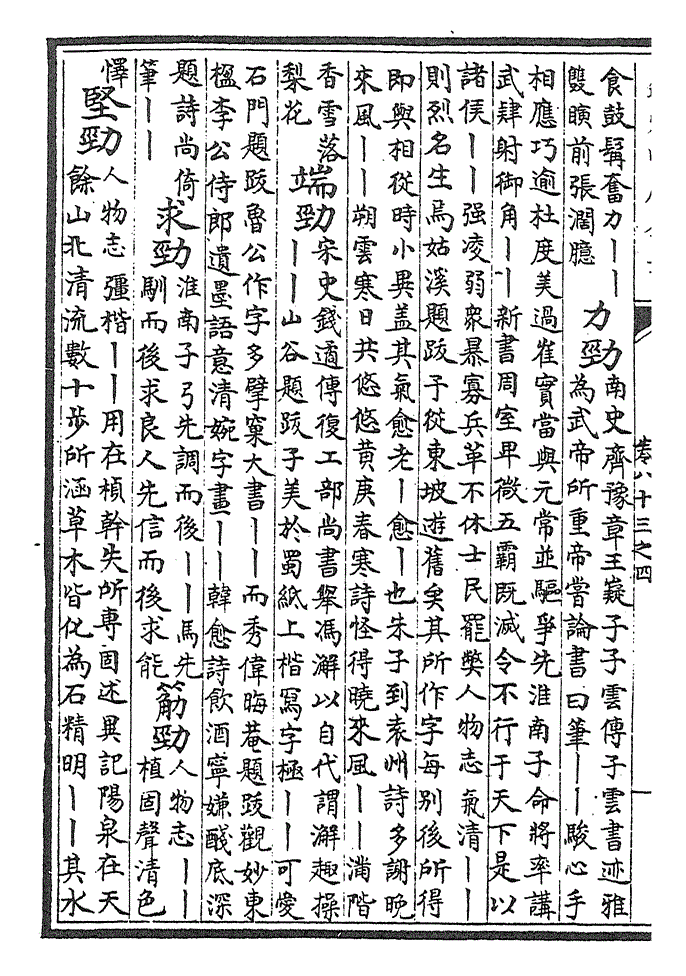 食鼓鬅奮力——
雙瞋前張濶臆
力勁
南史齊豫章王嶷子子雲傳子雲書迹雅
為武帝所重帝嘗論書曰筆——駿心手
相應巧逾杜度美過崔寔當與元常並驅爭先淮南子命將率講
武肄射御角——新書周室卑微五霸既滅令不行于天下是以
諸侯——强凌弱衆暴寡兵革不休士民罷弊人物志氣清——
則烈名生焉姑溪題跋予從東坡遊舊矣其所作字每别後所得
即與相從時小異盖其氣愈老—愈—也朱子到袁州詩多謝晚
來風——朔雲寒日共悠悠黄庚春寒詩怪得曉來風——滿階
香雪落
梨花
端勁
宋史錢遹傳復工部尚書舉馮澥以自代謂澥趣操
——山谷題跋子美於蜀紙上楷寫字極——可愛
石門題跋魯公作字多擘窠大書——而秀偉晦菴題跋觀妙東
楹李公侍郎遺墨語意清婉字畫——韓愈詩飲酒寧嫌醆底深
題詩尚倚
筆——
求勁
淮南子弓先調而後——馬先
馴而後求良人先信而後求能
筋勁
人物志——
植固聲清色
懌
堅勁
人物志彊楷——用在楨幹失所專固述異記陽泉在天
餘山北清流數十步所涵草木皆化為石精明——其水
卷八十三之四